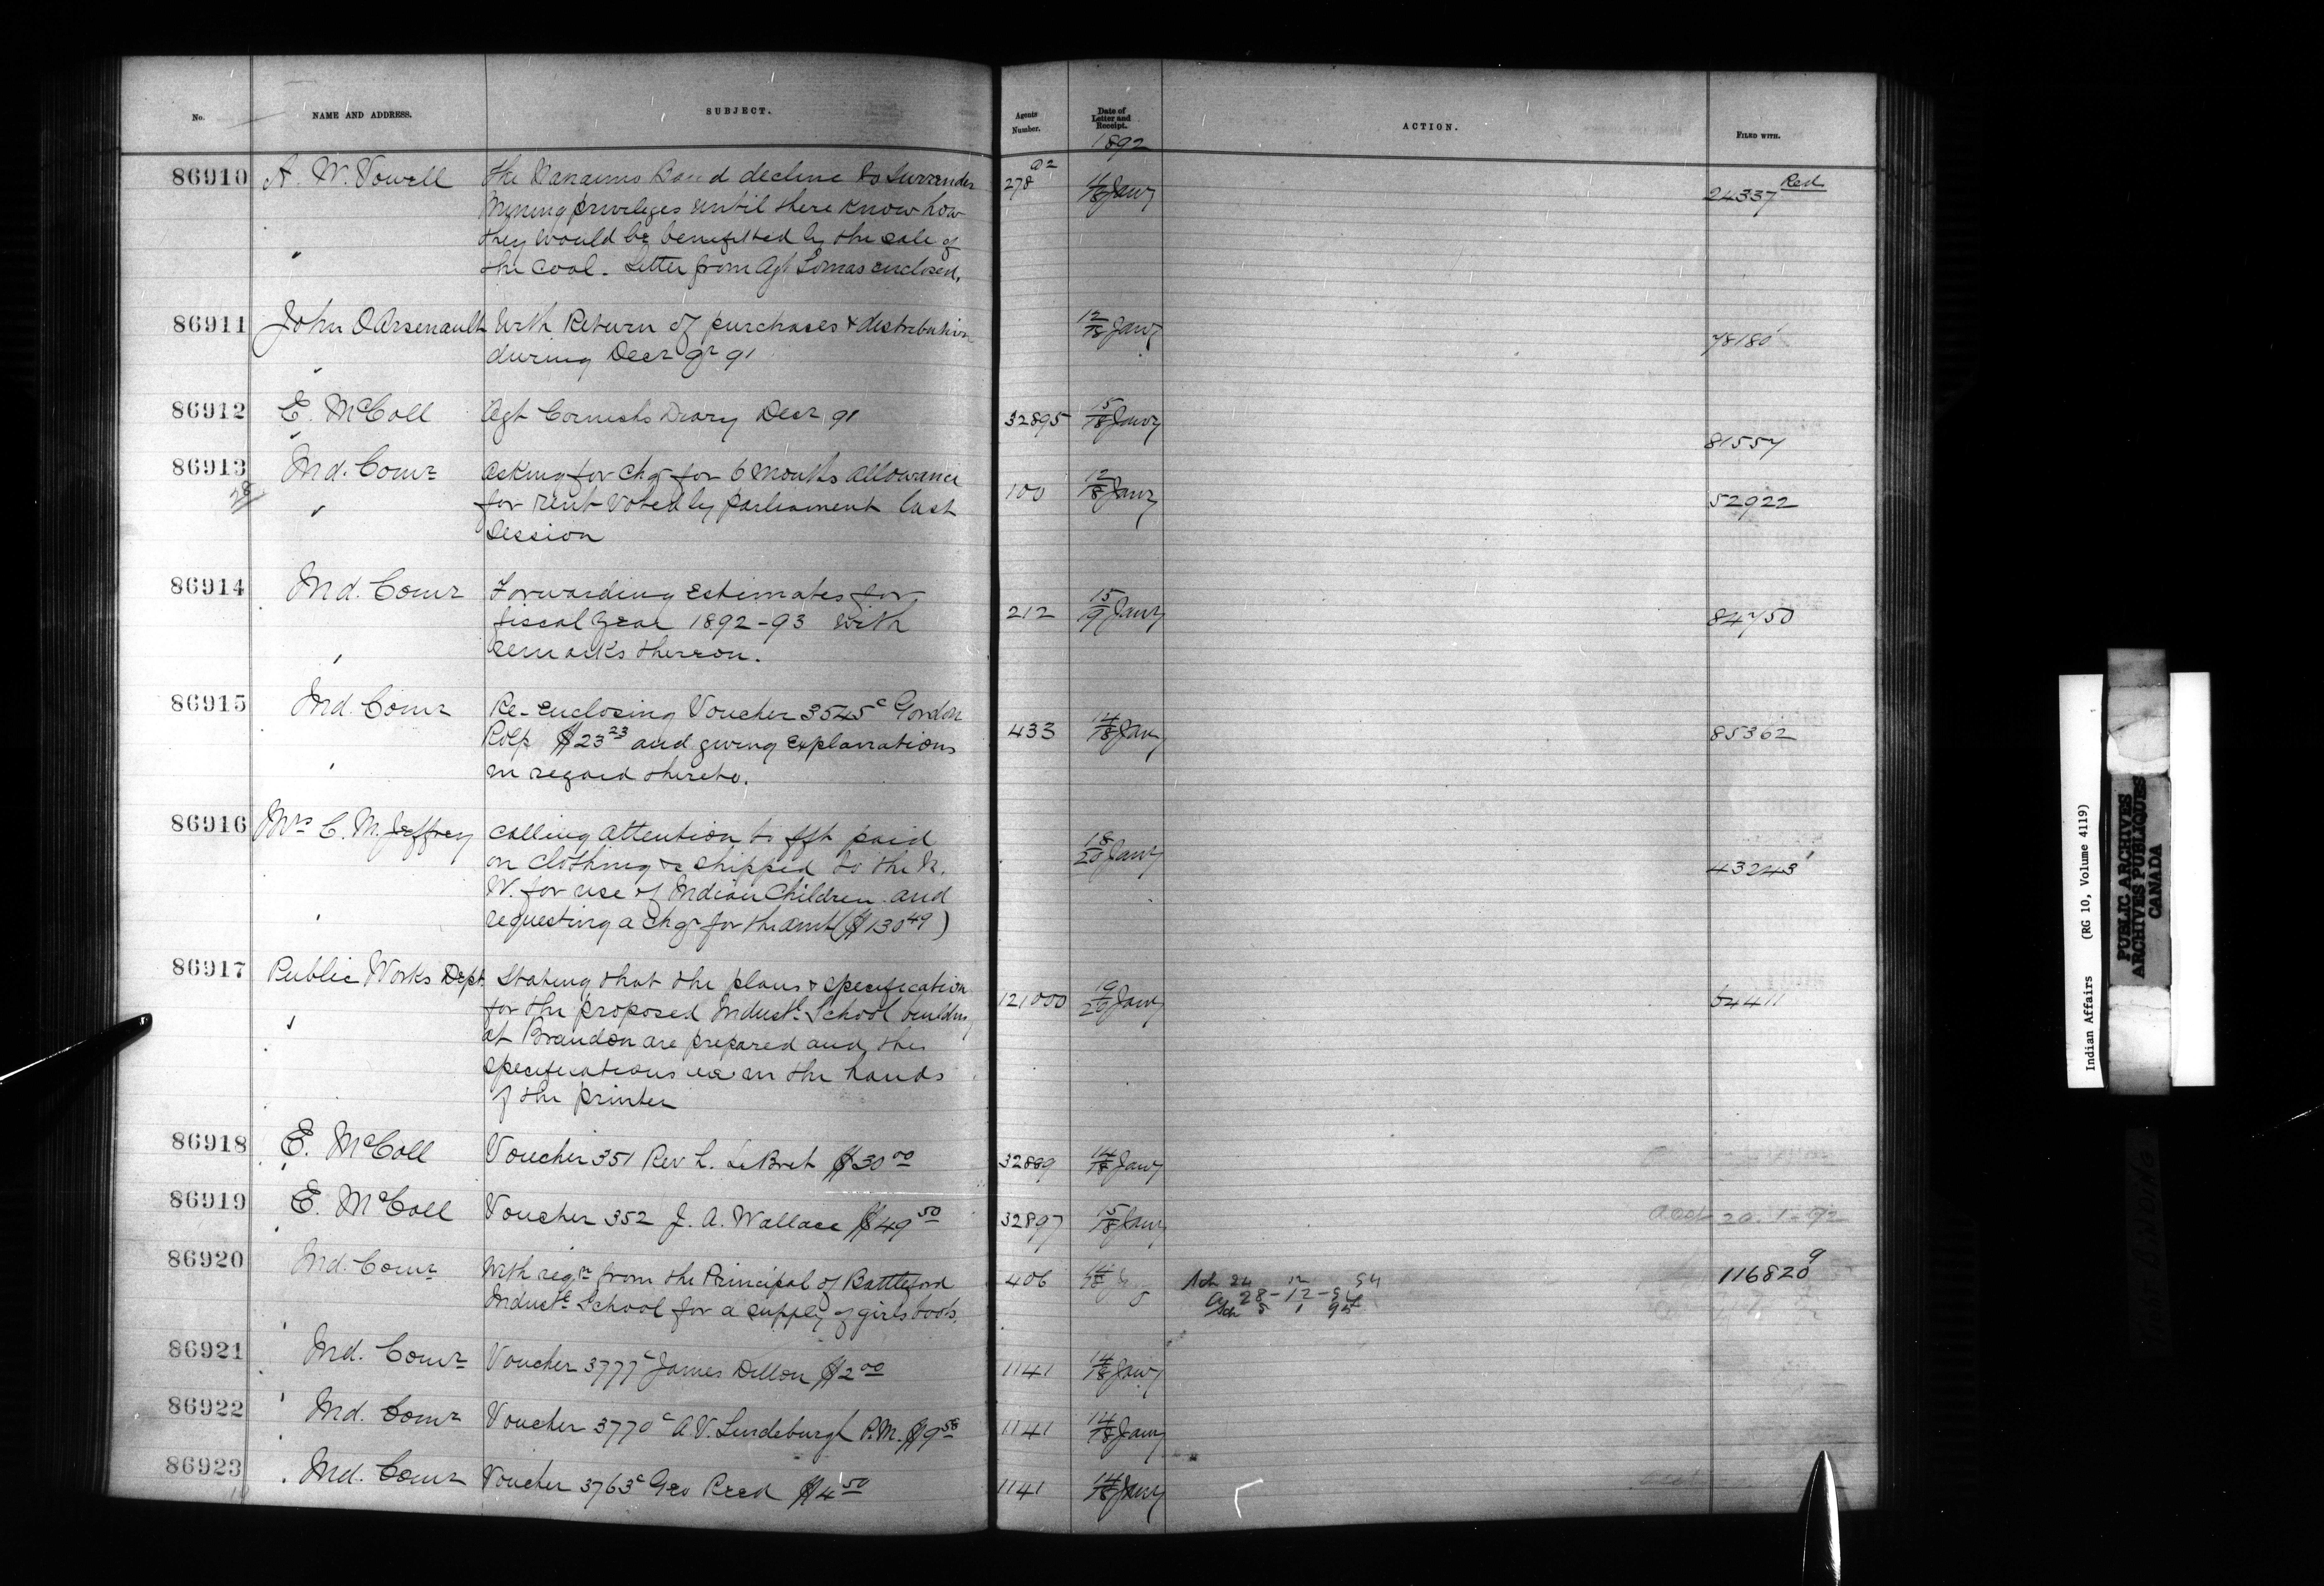 No. NAME AND ADDRESS. SUBJECT. Agents Number. Date of Letter and Receipt. ACTION. FILED WITH.
1892
86910 A. W. Vowell The Nanaimo Band decline to Surrender 278 Q2 /18 Jany 24337 Red
Mining privileges until there know how
they would be benefitted by the sale of
the Coal. Letter from Agt Lomas enclosed.
86911 John O Arsenault With Return of purchases & distribution 12/18 Jany 78180
during Decr Qr 91
86912 E. McColl Agt Cornish's Diary Decr 91 32895 15/18 Jany 81557
86913 Ind. Comr Asking for chq for 6 months allowance 100 12/18 Jany 52922
for rent voted by parliament last
Session
86914 Ind. Comr Forwarding Estimates for 212 15/19 Jany 84750
fiscal year 1892-93 with
remarks thereon.
86915 Ind. Comr Re-enclosing Voucher 3545c Gordon 433 14/18 Jany 85362
Rolp $23 23 and giving explanations
in regard thereto.
86916 Mrs C. M. Jeffrey Calling attention to fft paid 18/20 Jany 43243
on clothing & shipped to the N.
W. for use of Indian Children and
requesting a chq for the amt ($130 49)
86917 Public Works Dept. Stating that the plans & specification 121000 19/20 Jany 54411
for the proposed Industl School building
at Brandon are prepared and the
specifications in the hands
of the printer
86918 E. McColl Voucher 351 Rev L. LeBret $30 00 32889 14/18 Jany
86919 E. McColl Voucher 352 J. A. Wallace $49 50 32897 15/18 Jany Acct 20.1.92
86920 Ind. Comr With reqn from the Principal of Battleford 406 14/18 J Sch 24 12 94 116820 9
Industl School for a supply of girls boots. 28-12-94
Sch 5 1 95
86921 Ind. Comr Voucher 3777c James Dillon $2 00 1141 14/18 Jany
86922 Ind. Comr Voucher 3770c A. V. Lindeburgh P.M. $9 58 1141 14/18 Jany
86923 Ind. Comr Voucher 3763c Geo Reed $4 50 1141 14/18 Jany
Indian Affairs (RG 10, Volume 4119)
PUBLIC ARCHIVES
ARCHIVES PUBLIQUES
CANADA